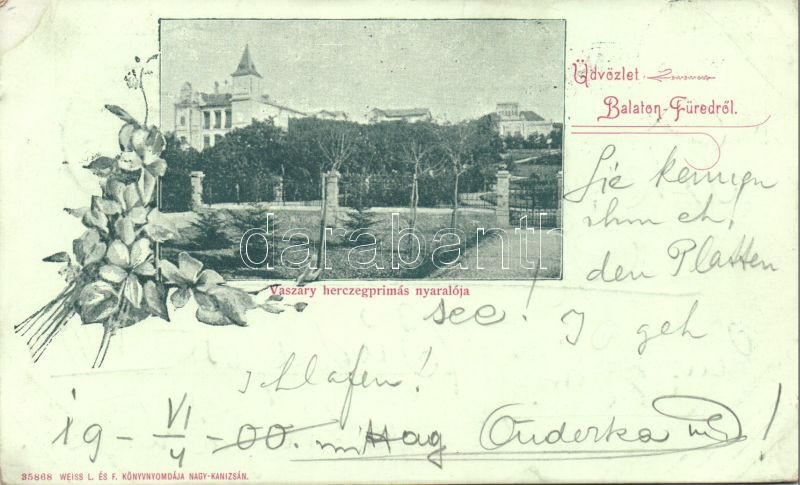 Üdvözlet
Balaton-Füredről.
Sie kennen
ihm eh,
den Platten
see! I geh
schlafen!
19 - VI/4 - 00. mittag
darabanth.com
Vaszary herczegprimás nyaralója
35868 WEISS L. ÉS F. KÖNYVNYOMDÁJA NAGY-KANIZSÁN.